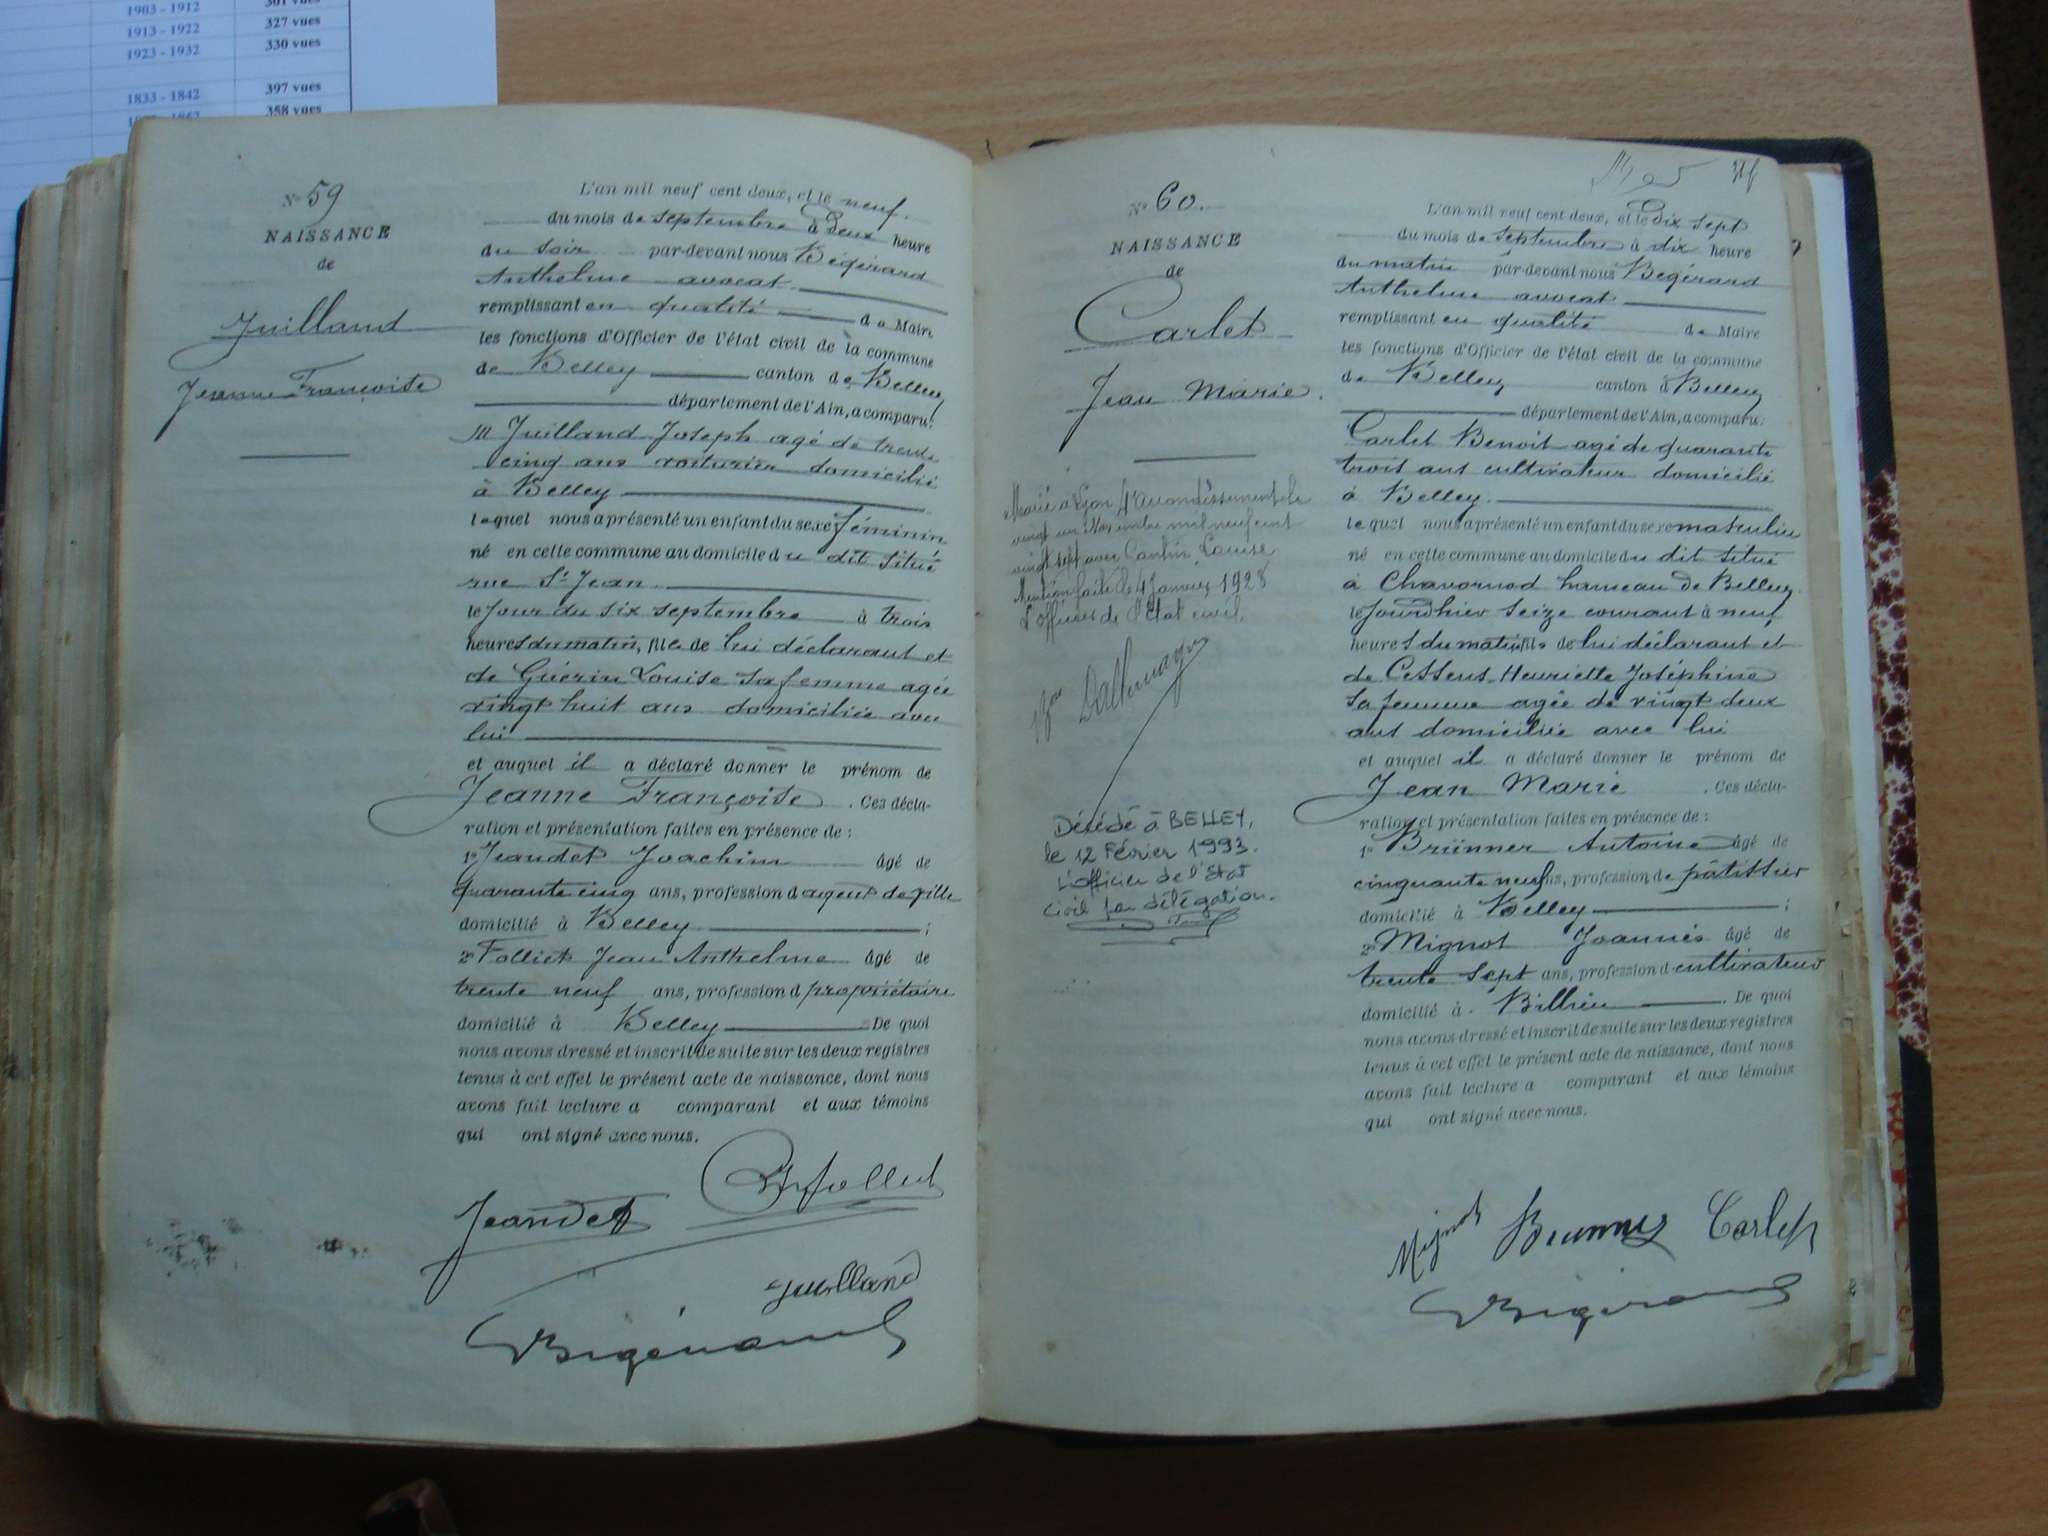 1903 - 1912 301 vues
1913 - 1922 327 vues
1923 - 1932 330 vues
1833 - 1842 397 vues
358 vues
N° 59
NAISSANCE
de
Juilland
Jeanne Françoise
L'an mil neuf cent deux, et le neuf
du mois de septembre à deux heure
du soir par-devant nous Bégérard
Anthelme avocat
remplissant en qualité de Maire
les fonctions d'Officier de l'état civil de la commune
de Belley canton de Belley
département de l'Ain, a comparu:
M Juilland Joseph agé de trente
cinq ans voiturier domicilié
à Belley
lequel nous a présenté un enfant du sexe féminin
né en cette commune au domicile du dit situé
rue St Jean
le jour du six septembre à trois
heures du matin, fille de lui déclarant et
de Guérin Louise sa femme agée
vingt huit ans domiciliée avec
lui
et auquel il a déclaré donner le prénom de
Jeanne Françoise . Ces décla-
ration et présentation faites en présence de :
1° Jeandet Joachim âgé de
quarante cinq ans, profession d agent de ville
domicilié à Belley ;
2° Folliet Jean Anthelme âgé de
trente neuf ans, profession d propriétaire
domicilié à Belley De quoi
nous avons dressé et inscrit de suite sur les deux registres
tenus à cet effet le présent acte de naissance, dont nous
avons fait lecture a comparant et aux témoins
qui ont signé avec nous.
Jeandet
Juilland
Bégérard
N° 60.
NAISSANCE
de
Carlet
Jean Marie.
Marié à Lyon 4e arrondissement le
vingt un Novembre mil neuf cent
vingt sept avec Cantin Louise
Mention faite le 4 Janvier 1928
L'officier de l'Etat civil,
Décédé à BELLEY,
le 12 Février 1993.
L'officier de l'Etat
Civil par délégation.
L'an mil neuf cent deux, et le dix sept
du mois de septembre à dix heure
du matin par-devant nous Bégérard
Anthelme avocat
remplissant en qualité de Maire
les fonctions d'Officier de l'état civil de la commune
de Belley canton d Belley
département de l'Ain, a comparu:
Carlet Benoit agé de quarante
trois ans cultivateur domicilié
à Belley.
lequel nous a présenté un enfant du sexe masculin
né en cette commune au domicile du dit situé
à Chavornod hameau de Belley.
le jour d'hier seize courant à neuf
heures du matin fils de lui déclarant et
de Cessens Henriette Joséphine
sa femme agée de vingt deux
ans domiciliée avec lui
et auquel il a déclaré donner le prénom de
Jean Marie . Ces décla-
ration et présentation faites en présence de :
1° Brünner Antoine âgé de
cinquante neuf ans, profession de pâtissier
domicilié à Belley ;
2° Mignot Joannès âgé de
trente sept ans, profession d cultivateur
domicilié à Billieu . De quoi
nous avons dressé et inscrit de suite sur les deux registres
tenus à cet effet le présent acte de naissance, dont nous
avons fait lecture a comparant et aux témoins
qui ont signé avec nous.
Mignot Brunner Carlet
Bégérard